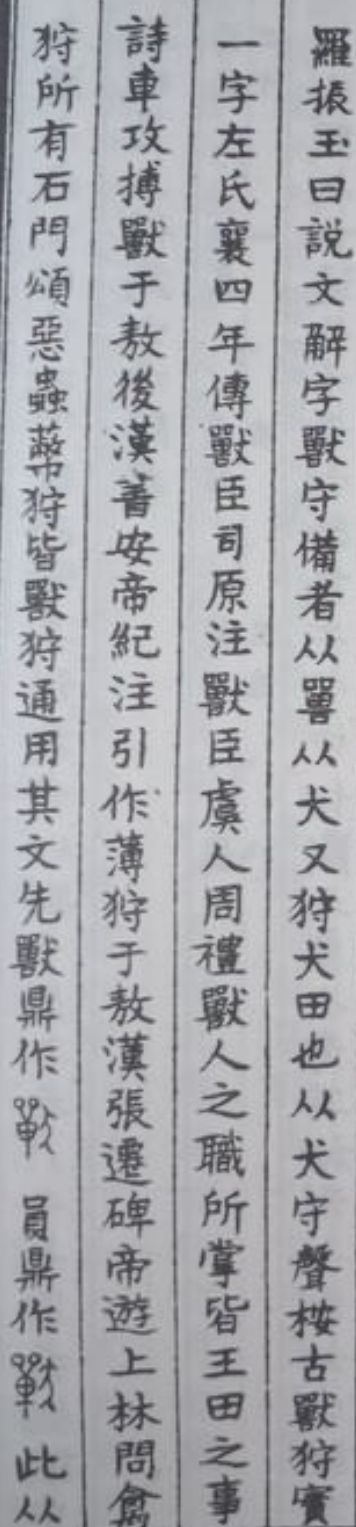 羅振玉曰說文解字獸守備者从嘼从犬又狩犬田也从犬守聲桉古獸狩實
一字左氏襄四年傳獸臣司原注獸臣虞人周禮獸人之職所掌皆王田之事
詩車攻搏獸于敖後漢書安帝紀注引作薄狩于敖漢張遷碑帝遊上林問禽
狩所有石門頌惡蟲蔽狩皆獸狩通用其文先獸鼎作 員鼎作 此从